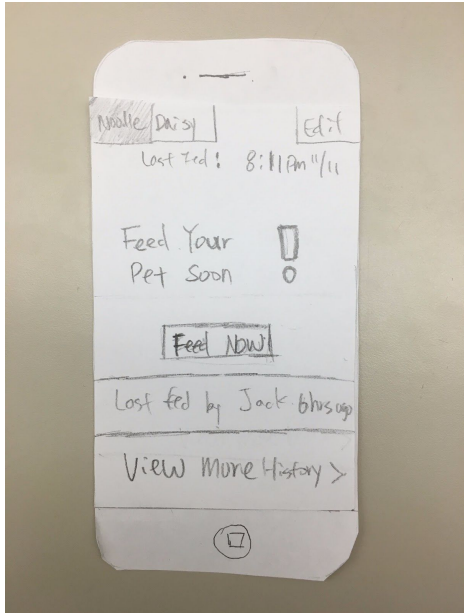 Noodle Daisy Edit
Last Fed: 8:11PM 11/11
Feed Your !
Pet Soon
Feed Now!
Last fed by Jack 6hrs ago
View More History >